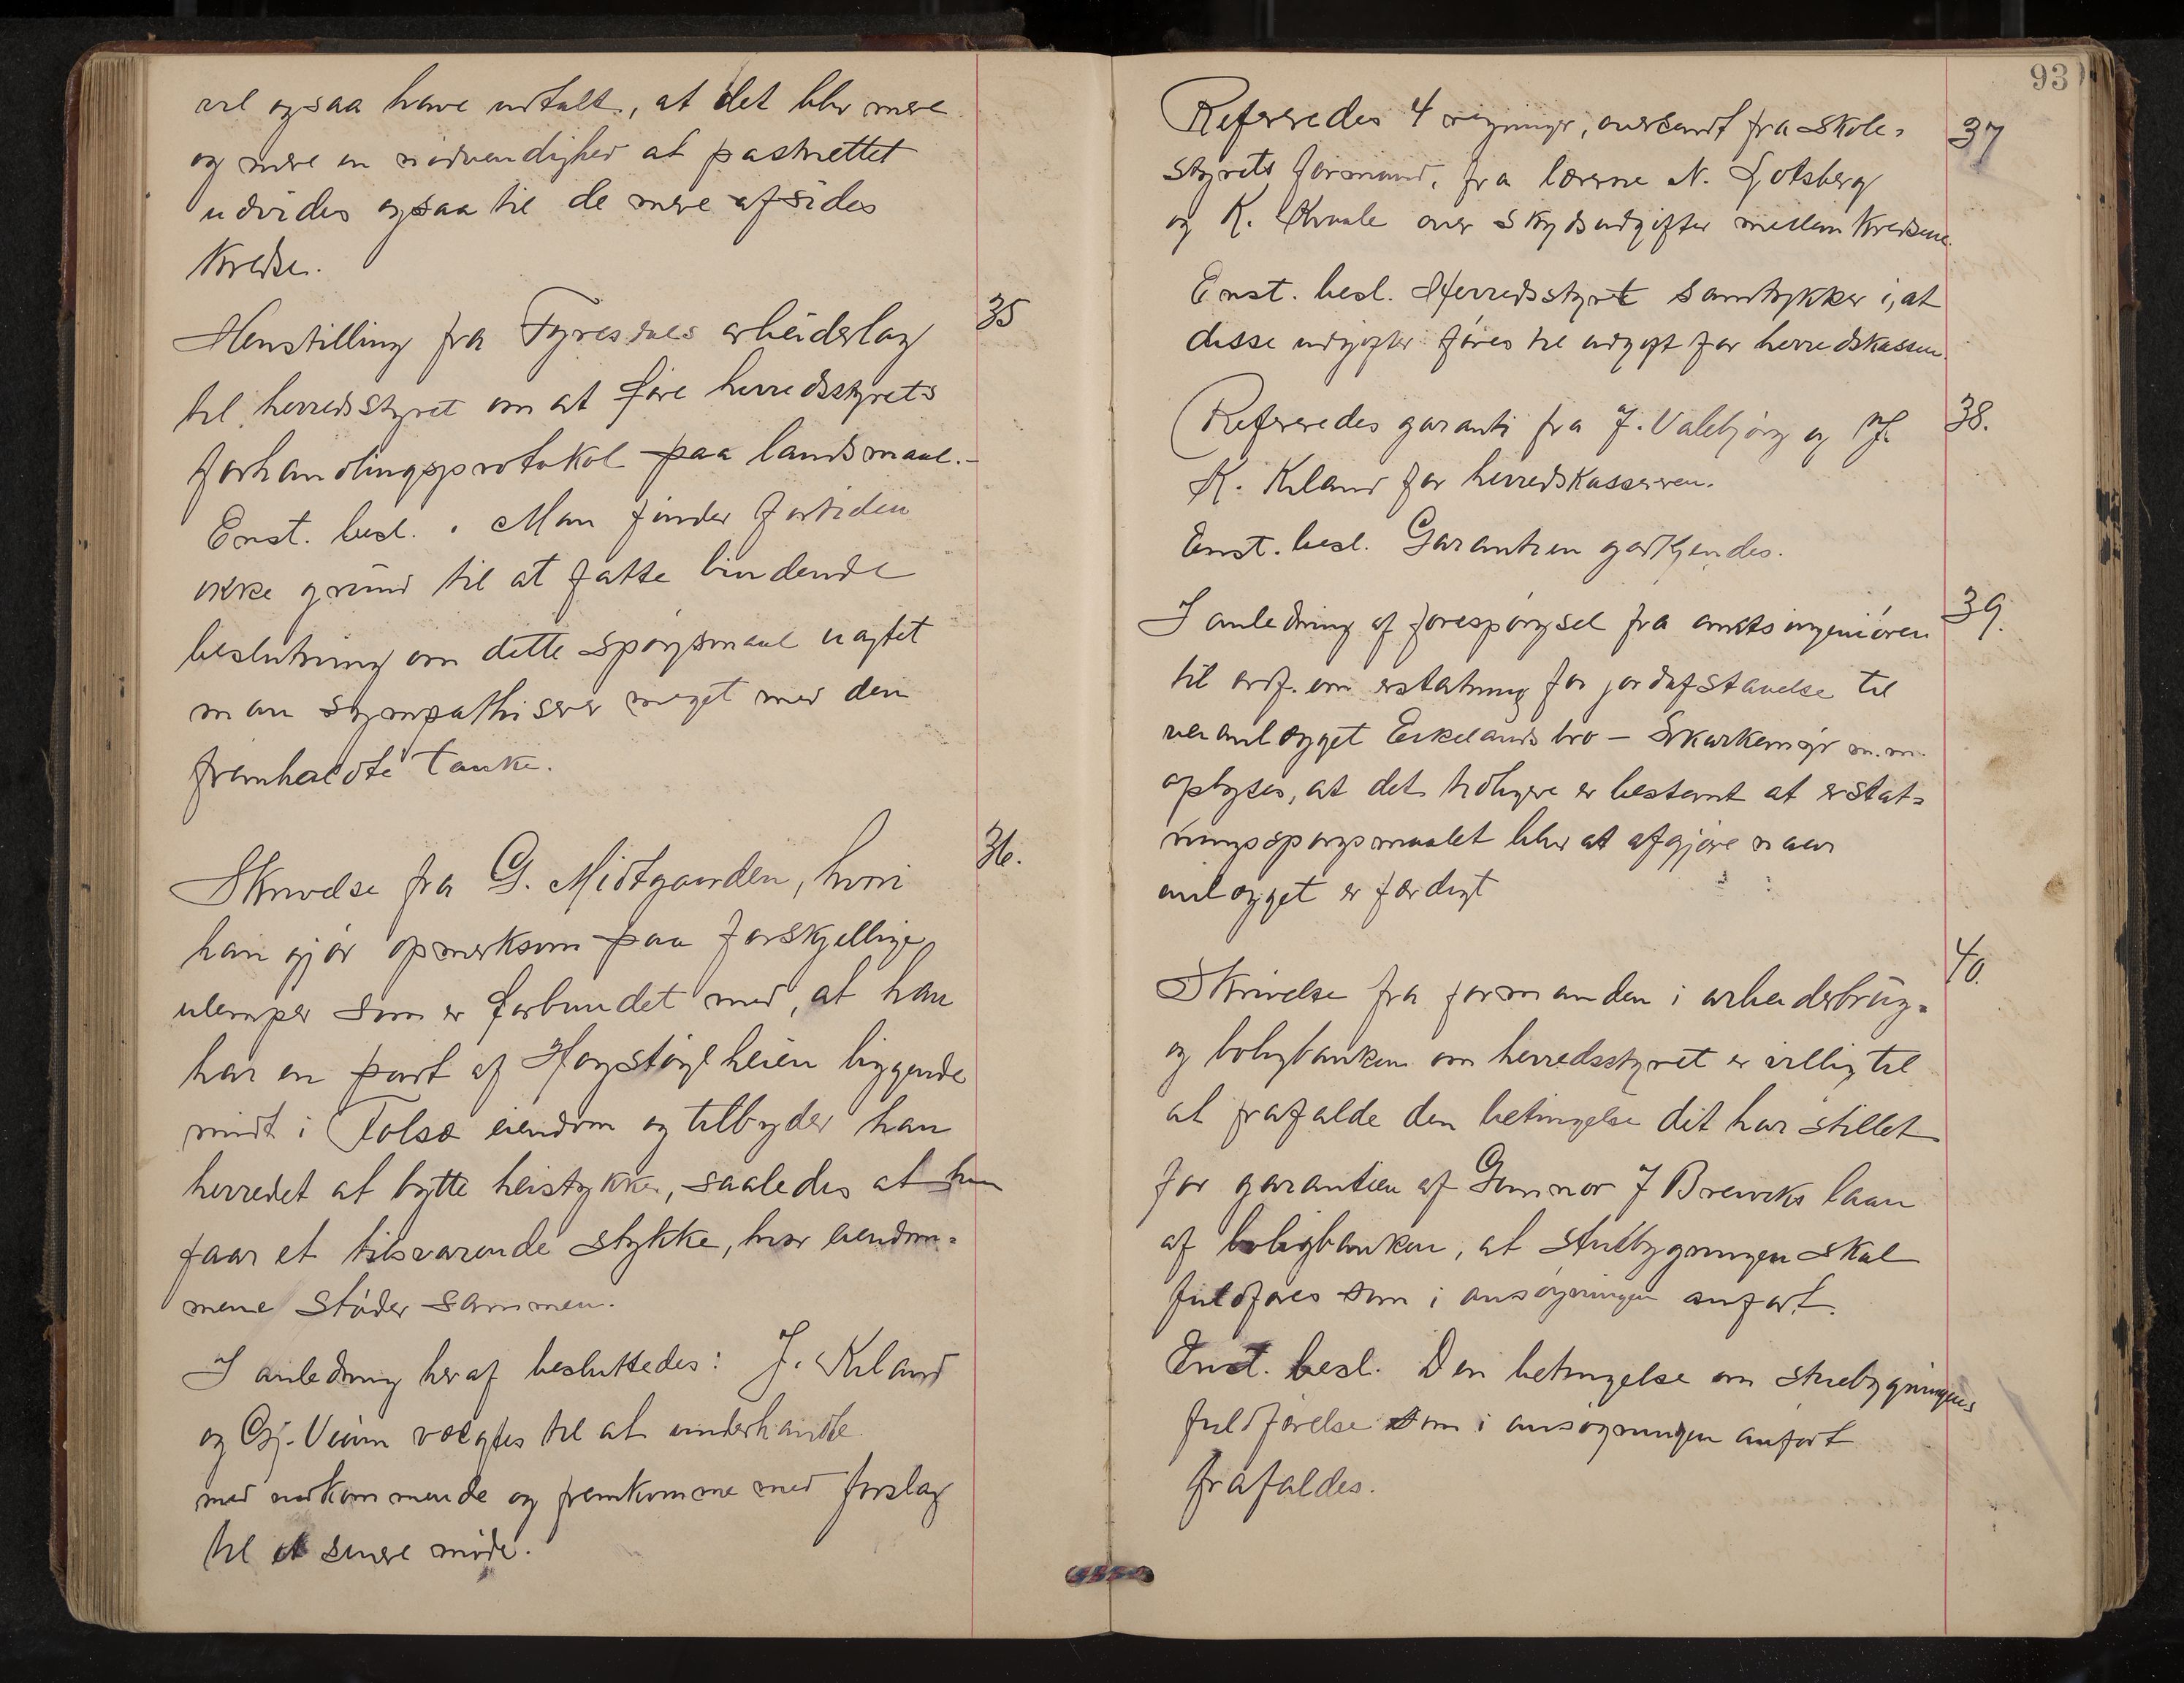 vil ogsaa have udtalt, at det blir mere
og mere en nødvendighed at postnettet
udvides ogsaa til de mere afsides
Kredse.
35
Henstilling fra Fyresdals arbeiderlag
til herredsstyret om at føre herredsstyrets
forhandlingsprotokol paa landsmaal.-
Enst. besl. Man finder fortiden
ikke grund til at fatte bindende
beslutning om dette spørgsmaal uagtet
man sympathiserer meget med den
fremholdte tanke.
36.
Skrivelse fra G. Midtgaarden, hvori
han gjør opmerksom paa forskjellige
ulemper som er forbundet med, at han
har en part af Høgstøylheien liggende
midt i Folsæ eiendom og tilbyder han
herredet at bytte heistykke, saaledes at han
faar et tilsvarende stykke, hvor eiendom=
mene støder sammen.
I anledning heraf besluttedes: J. Kiland
og Gj. Veum vælgtes til at underhandle
med vedkommende og fremkomme med forslag
til et senere møde.
93
37
Refereredes 4 regninger, oversendt fra skole=
styrets formand, fra lærerne N. Gotsberg
og K. Kvaale over skydsudgifter mellem kredsene.
Enst. besl. Herredsstyret samtykker i, at
disse udgifter føres til udgift for herredskassen.
38.
Refereredes garanti fra J. Valebjørg og J.
K. Kiland for herredskassereren.
Enst. besl. Garantien godkjendes.
39.
I anledning af forespørgsel fra amtsingeniøren
til ordf. om erstatning for jordafstaaelse til
veianlægget Eikelands bro - Skarkemyr m.m.
oplyses, at det tidligere er bestemt at erstat=
ningsspørgsmaalet blir at afgjøre naar
anlægget er færdigt
40.
Skrivelse fra formanden i arbeiderbrug=
og boligbanken om herredsstyret er villig til
at frafalde den betingelse det har stillet
for garantien af Gunnar J Breiviks laan
af boligbanken, at stuebygningen skal
fuldføres som i ansøgningen anført.
Enst. besl. Den betingelse om stuebygningens
fuldførelse som i ansøgningen anført
frafaldes.